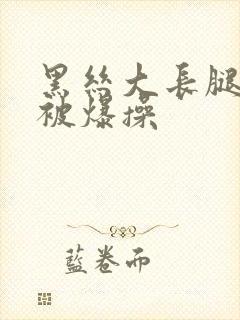 黑丝大長腿
被爆操
藍卷而